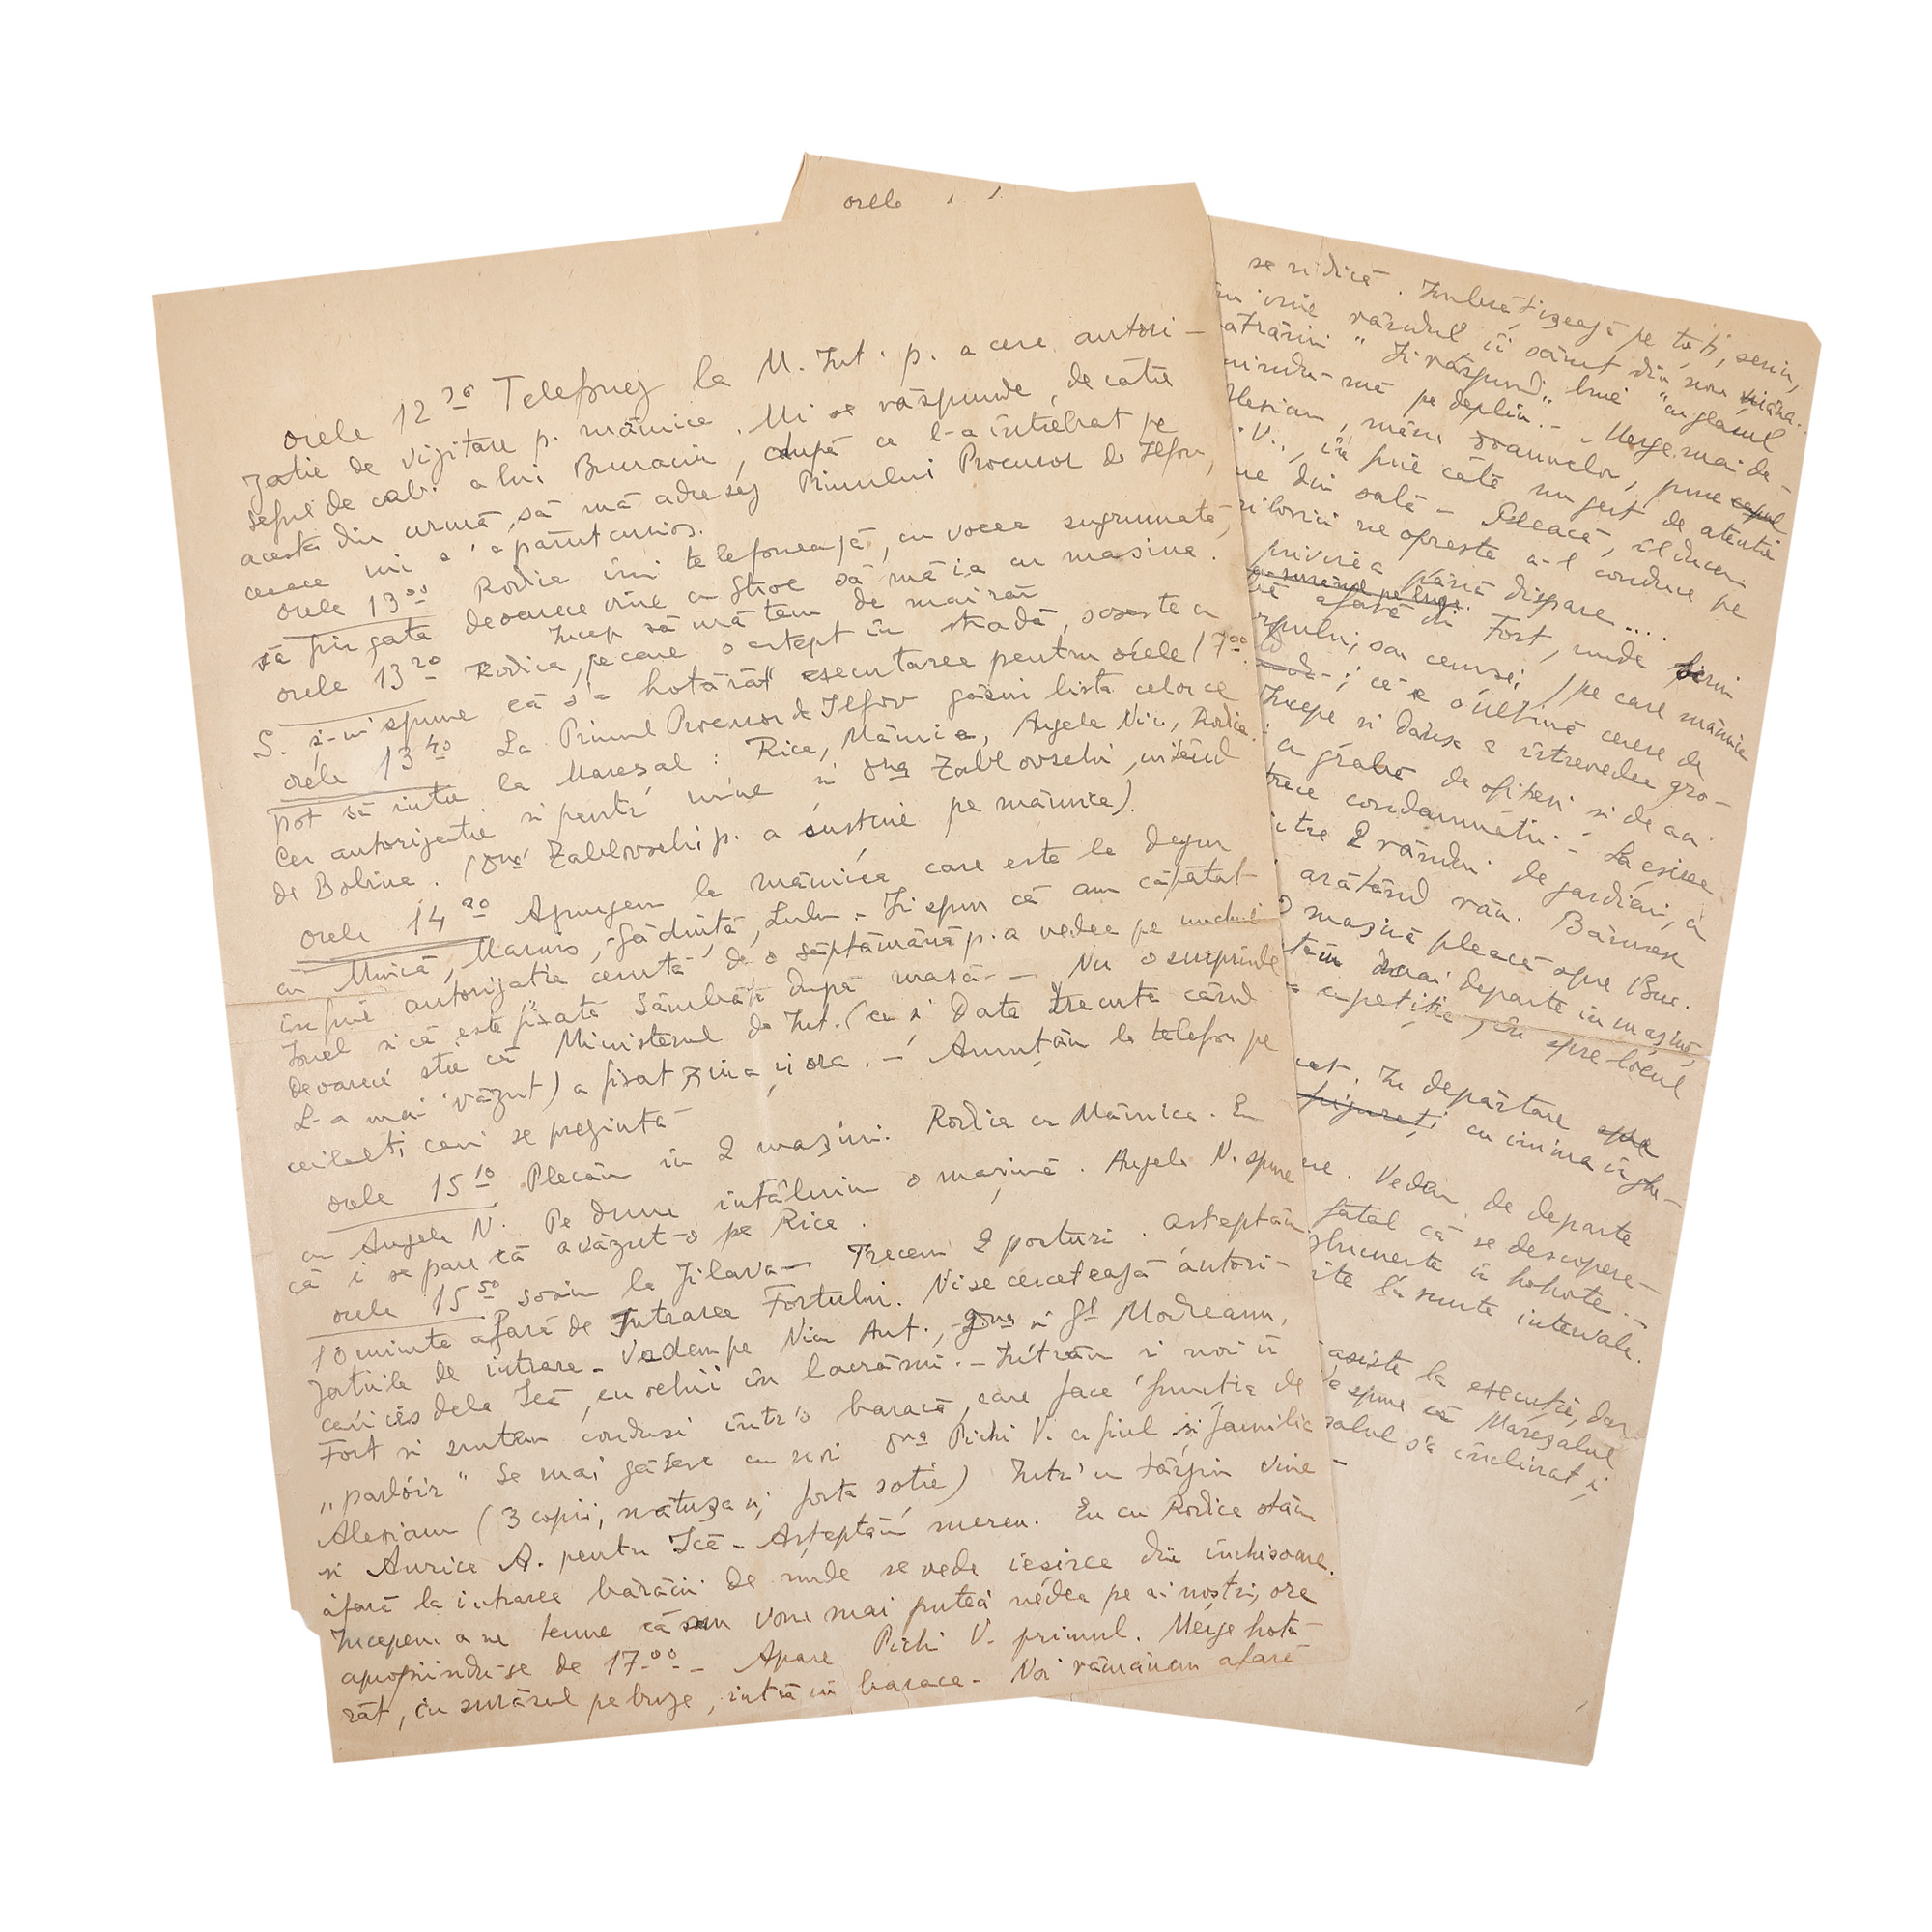 orele
orele 12 30 Telefonez la M. Int. p. a cere autori-
zatie de vizitare p. mămica. Mi se răspunde, de către
șeful de cab. a lui Burnaciu, după ce l-a întrebat pe
acesta din urmă, să mă adresez Primului Procuror de Ilfov,
ceeace mi s'a părut curios.
orele 13 00 Rodica îmi telefonează, cu vocea sugrumată,
să fiu gata deoarece vine cu Stroe să mă ia cu mașina.
Încep să mă tem de mai rău
orele 13 20 Rodica, pe care o aștept în stradă, sosește cu
S. și-mi spune că s'a hotărât executarea pentru orele 17 00.
orele 13 40 La Primul Procuror de Ilfov găsim lista celor ce
pot să intre la Mareșal: Rica, Mămica, Angela Nic, Rodica.
Cer autorizatie și pentru mine și Dna Zablovschi,
de Bolvina. (Dna Zablovschi p. a susține pe mămica).
orele 14 20 Ajungem la mămica care este la dejun
cu Mimică, Marius, Gădiuță, Lulu. Îi spun că am căpătat
în fine autorizatia cerută de o săptămână p. a vedea pe unchiul
Ionel și că este fixată Sâmbătă după masă. Nu o surprinde
deoarece știe că Ministerul de Int. (ca și Data trecută când
L-a mai văzut) a fixat ziua și ora. - Anunțăm la telefon pe
ceilalți cari se prezintă
orele 15 10 Plecăm în 2 mașini. Rodica cu Mămica. Eu
cu Angela N. Pe drum întâlnim o mașină. Angela N. spune
că i se pare că a văzut-o pe Rica.
orele 15 50 sosim la Jilava - Trecem 2 posturi. așteptăm
10 minute afară de Intrarea Fortului. Ni se cercetează autori-
zatiile de intrare. Vedem pe Nicu Ant., Dna și Gl Modreanu,
cari ies dela Ică, cu ochii în lacrămi. - Intrăm și noi în
Fort și suntem conduși într'o baracă, care face funcția de
„parloir” Se mai găsesc cu noi Dna Pichi V. cu fiul și familia
Alexianu (3 copii, mătușa și fosta soție) Într'un târziu vine
și Aurica A. pentru Ică - Așteptăm mereu. Eu cu Rodica stăm
afară la intrarea bărăcii de unde se vede ieșirea din închisoare.
Începem a ne teme că nu vom mai putea vedea pe ai noștri, ora
apropiindu-se de 17 00 - Apare Pichi V. primul. Merge hotă-
rât, cu surâsul pe buze, intră în baracă - Noi rămânem afară
se ridică. Îmbrățișează pe toți, senin,
îmi vine rândul îi sărut din nou mâna.
Îi răspund „ cu glasul
pe deplin. - Merge mai de-
Alexianu, mâna doamnelor, pune capul
V., în fine câte un gest de atenție
din sală - Pleacă, îl ducem
ne oprește a-l conduce pe
privirea până dispare....
afară din Fort, unde
sau cenușei (pe care mămica
ce e o ultimă cerere de
Începe și dânsa a întrevedea gro-
cu grabă de ofițeri și de
trece condamnatii - La eșirea
2 rânduri de gardieni, a
arătând rău. Bărnescu
mașină pleacă spre Buc.
mai departe în mașină,
cu petiția, Eu spre locul
În depărtare
cu inima înghe-
Vedem de departe
fatal că se descopere-
în hohote.
la scurte intervale.
asiste la execuție, dar
spune că Mareșalul
s'a înclinat și